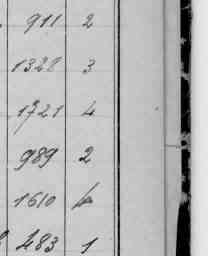 911 2
1328 3
1721 4
989 2
1610 4
483 1